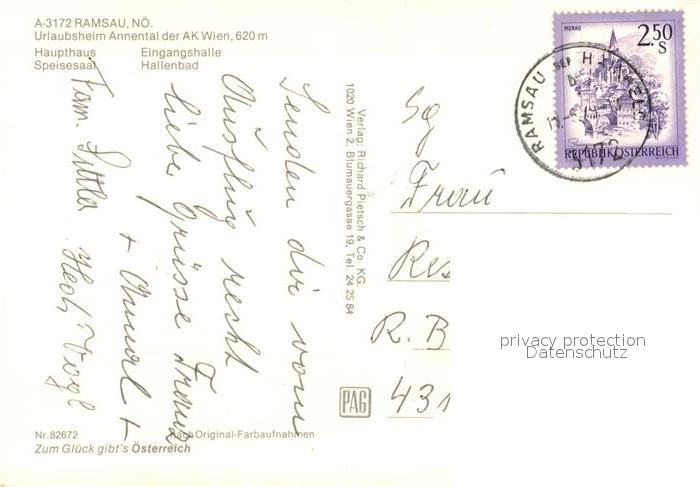 A-3172 RAMSAU, NÖ.
Urlaubsheim Annental der AK Wien, 620 m
Haupthaus Eingangshalle
Speisesaal Hallenbad
Senden dir vom
Ausflug recht
liebe Grüsse Franz
+ +
Fam.
Verlag: Richard Pietsch & Co. KG.
1020 Wien 2, Blumauergasse 19, Tel. 24 25 84
PAG
MURAU
2.50
S
REPUBLIK ÖSTERREICH
RAMSAU BEI
3172
Sg
Frau
Res
R. B
431
privacy protection
Datenschutz
Nr. 82672 nach Original-Farbaufnahmen
Zum Glück gibt's Österreich